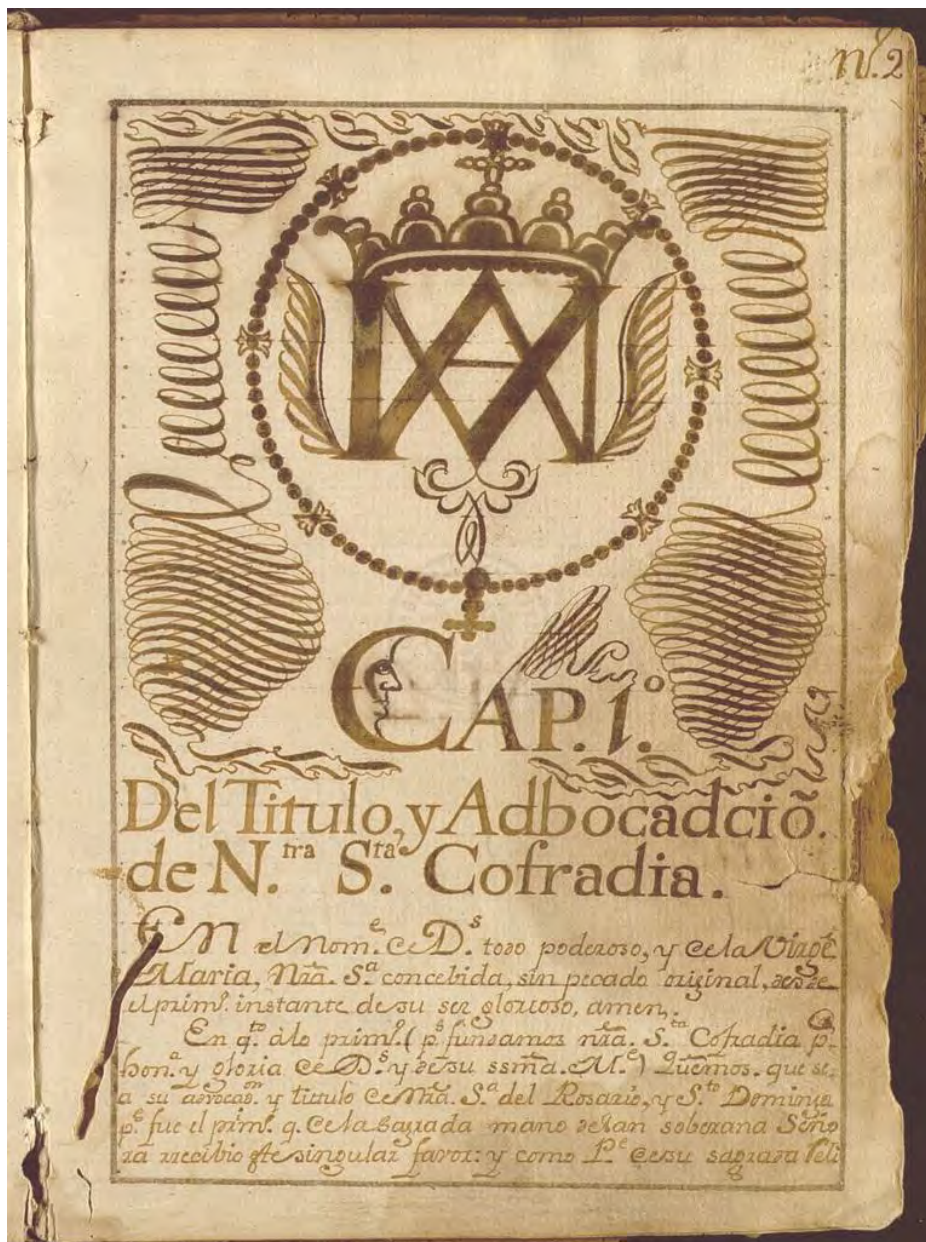 nº. 2
CAP. 1.º
Del Titulo, y Adbocadciõ.
de N.tra S.ta Cofradia.
EN el Nom.e de D.s todo poderoso, y de la Virgē
Maria, Nr̃a. S.a concebida, sin pecado original, desde
el prim.o instante de su ser glorioso, amen,.
En q.to á lo prim.o (p.s fundamos nr̃a. S.ta Cofradia p.a
hon.a y gloria de D.s y de su ssm̃a. M.e) Quēmos. que se-
a su advocao.n y tittulo de Nr̃a. S.a del Rosario, y S.to Domingo
p.e fue el prim.o q. de la Sagrada mano de tan soberana Seño
ra recibio este singular favor: y como P.e de su sagrada Reli